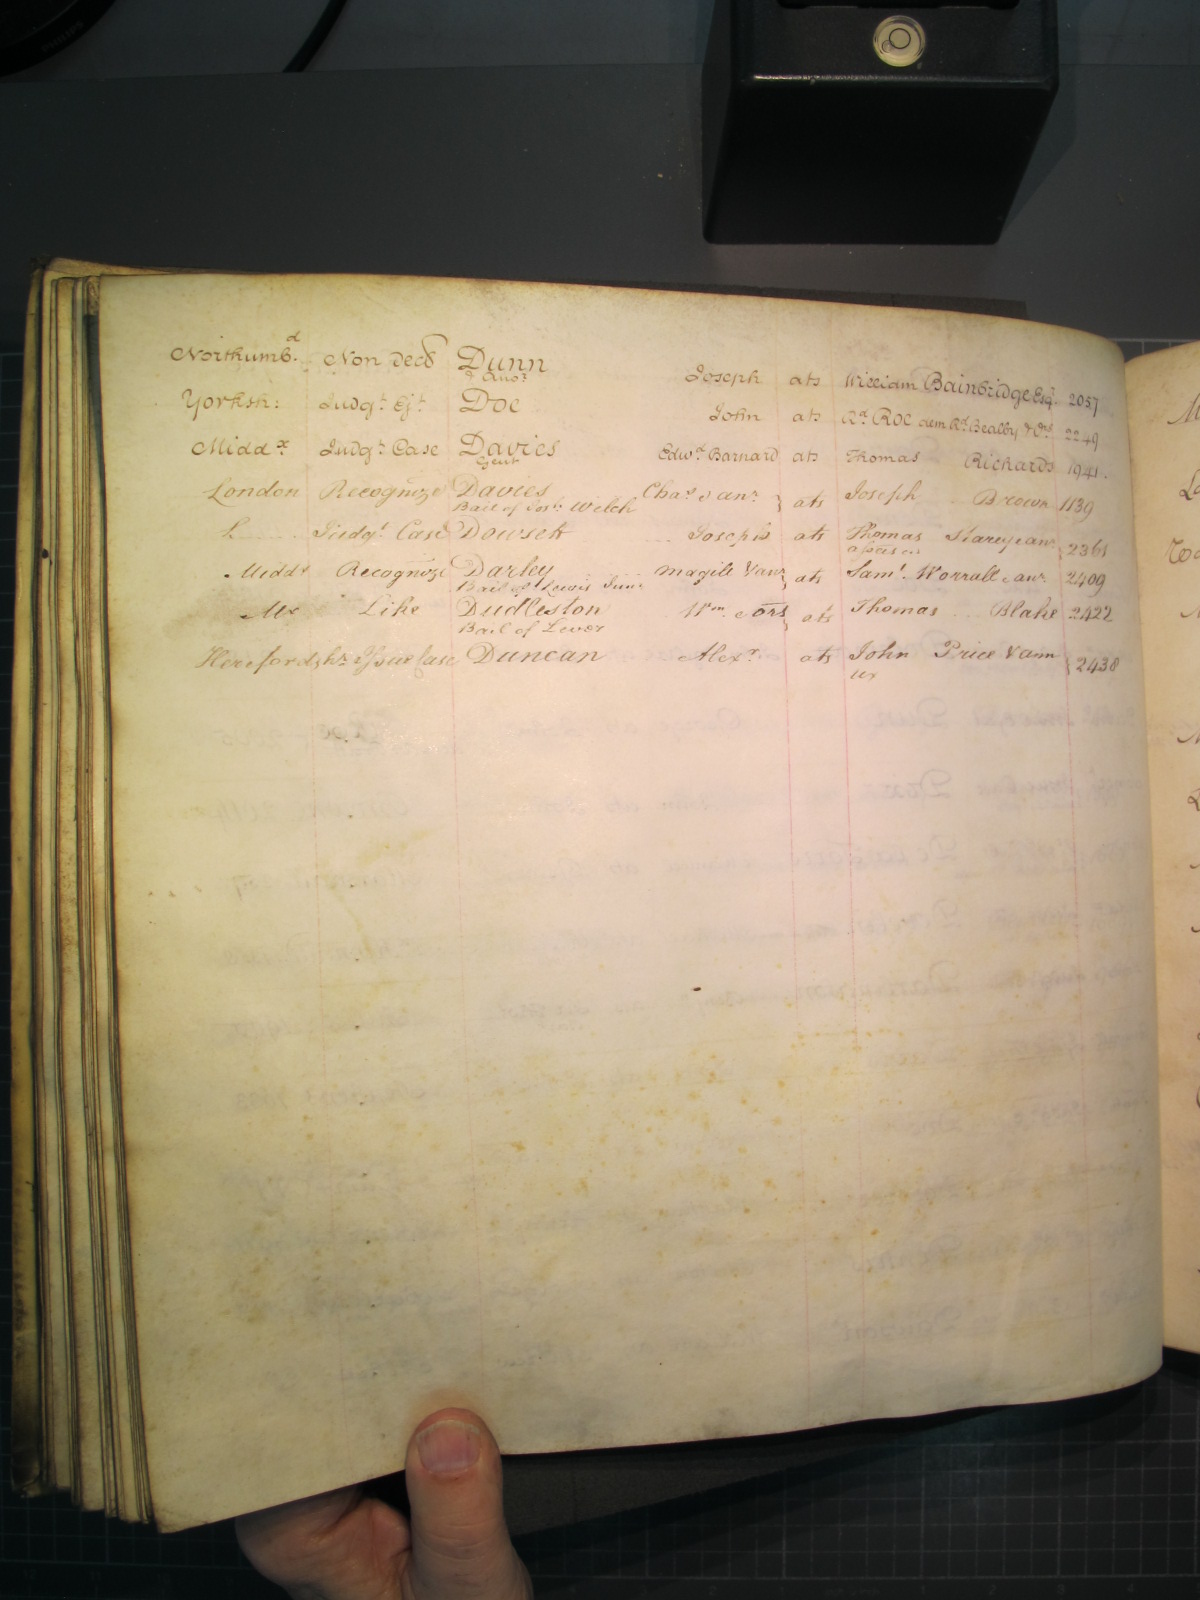 Northumb.d Non Decd Dunn Joseph ats William Bainbridge Esq. 2057
& Anor
Yorksh: Judgt Ejt Doe John ats Rd Roe dem Rd Bealby & Ors 2249
Middx Judgt Case Davies Edwd Barnard ats Thomas Richards 1941.
Gent
London Recognize Davies Chas & anr } ats Joseph Brown 1139
Bail of Josh Welch
L Judgt Case Dowsett Joseph ats Thomas & anr } 2361
Middx Recognize Darley Magill & anr } ats Saml Worrall & anr 2409
Bail of Lewis
Mx Like Dudleston Wm & ors } ats Thomas Blake 2422
Bail of Lever
Herefordshr Issue Case Duncan Alexr ats John Price & ann } 2438
ux